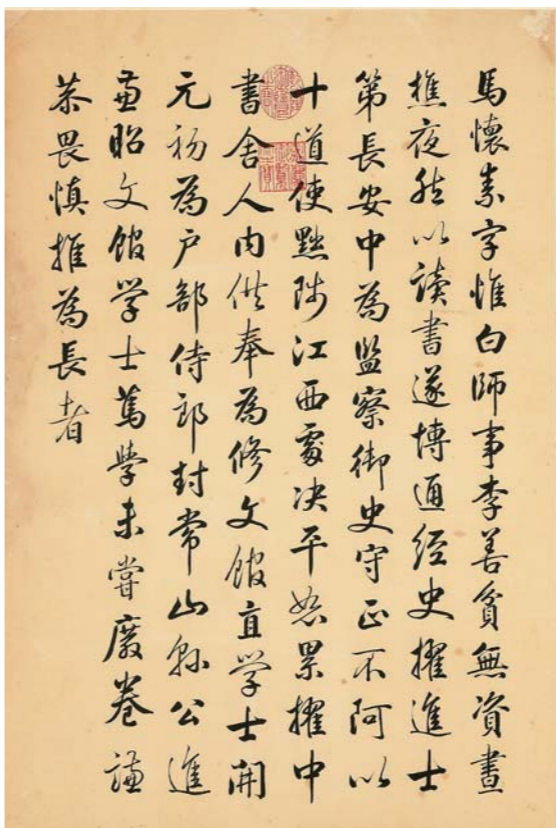 馬懷素字惟白師事李善貧無資晝
樵夜然以讀書遂博通經史擢進士
第長安中為監察御史守正不阿以
十道使黜陟江西處决平恕累擢中
書舍人内供奉為修文館直学士開
元初為户部侍郎封常山縣公進
兼昭文館学士篤學未嘗廢卷謙
恭畏慎推為長者